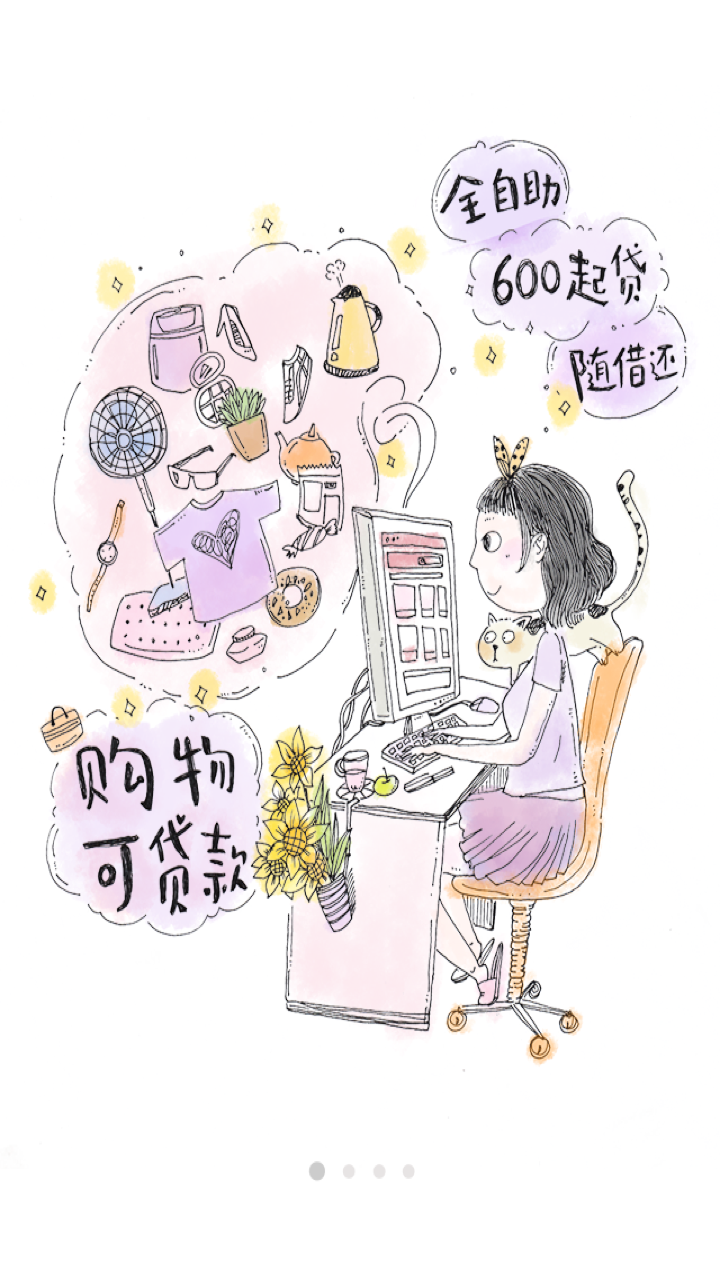 全自助
600起贷
随借还
购物
可贷款